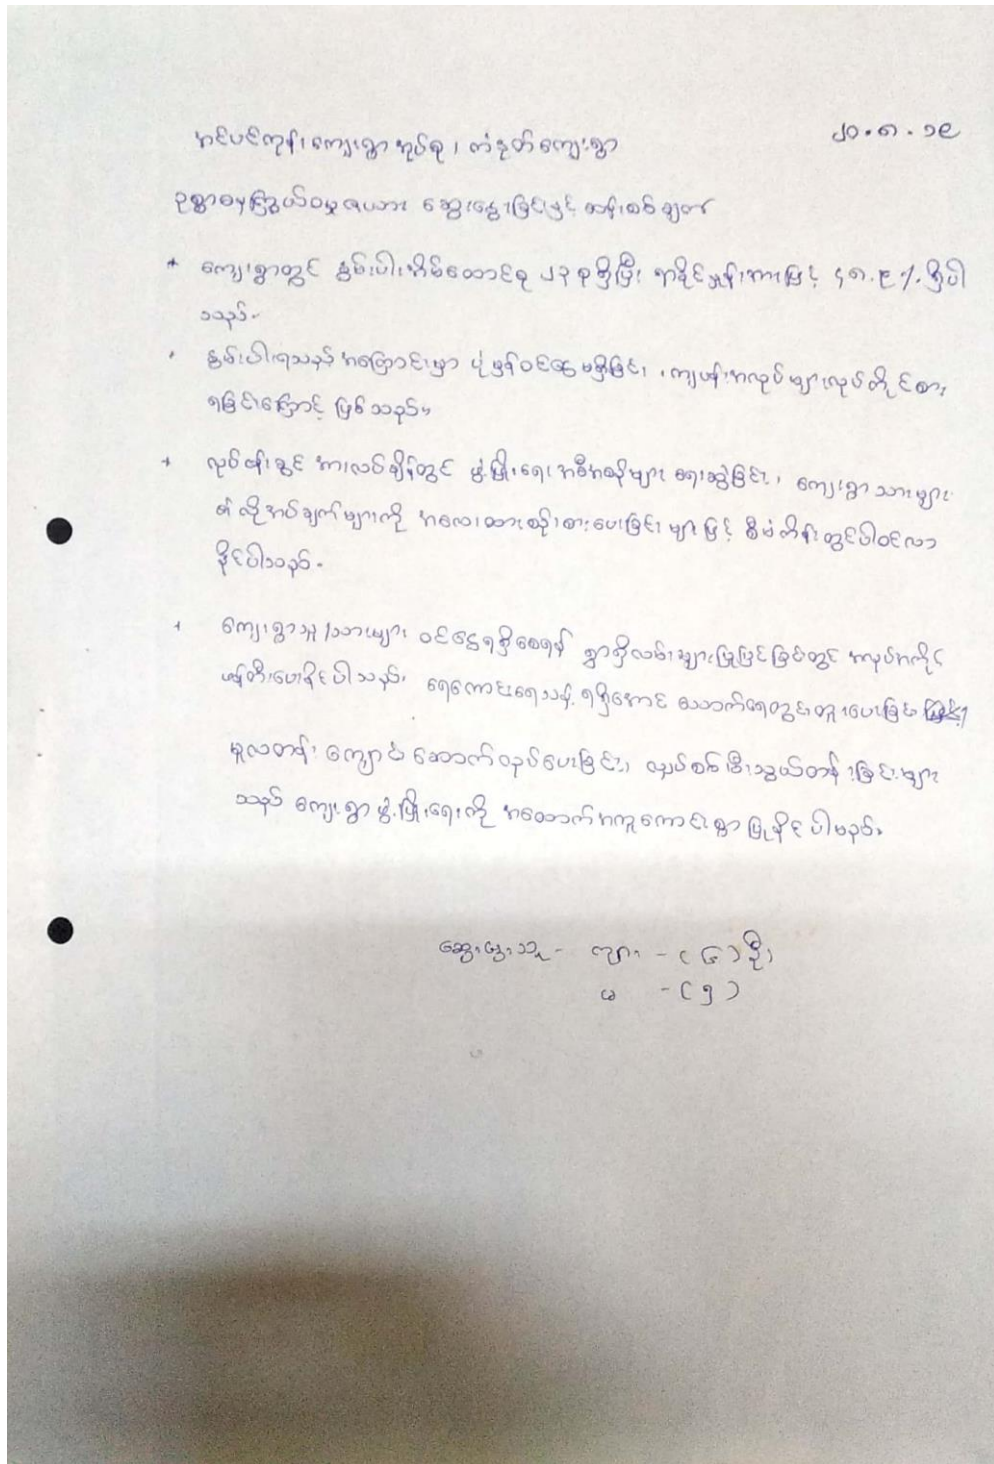 ၂၀.၈.၁၉
အင်ပင်ကုန်းကျေးရွာအုပ်စု၊ ကံနတ်ကျေးရွာ
ဥစ္စာဓနကြွယ်ဝမှုဇယား ဆွေးနွေးခြင်းနှင့် ဆန်းစစ်ချက်
* ကျေးရွာတွင် နွမ်းပါးအိမ်ထောင်စု ၂၃ စုရှိပြီး ရာခိုင်နှုန်းအားဖြင့် ၄၈.၉ %.ရှိပါ
သည်။
နွမ်းပါးရသည့် အကြောင်းမှာ ပုံမှန်ဝင်ငွေမရှိခြင်း၊ ကျပန်းအလုပ်များလုပ်ကိုင်စား
ရခြင်းကြောင့် ဖြစ်သည်။
+ လုပ်ငန်းခွင် အားလပ်ချိန်တွင် ဖွံ့ဖြိုးရေး အစီအစဉ်များ ရေးဆွဲခြင်း၊ ကျေးရွာသားများ
၏ လိုအပ်ချက်များကို အလေးထားစဉ်းစားပေးခြင်း များဖြင့် စီမံကိန်းတွင်ပါဝင်လာ
နိုင်ပါသည်။
+ ကျေးရွာသူ/သားများ ဝင်ငွေရရှိစေရန် ရွာရှိလမ်းများပြုပြင်ခြင်းတွင် အလုပ်အကိုင်
ဖန်တီးပေးနိုင်ပါသည်။ ရေကောင်းရေသန့် ရရှိအောင် သောက်ရေတွင်းတူးပေးခြင်း
မူလတန်း ကျောင်းဆောက်လုပ်ပေးခြင်း၊ လျှပ်စစ်မီးသွယ်တန်းခြင်းများ
သည် ကျေးရွာဖွံ့ဖြိုးရေးကို အထောက်အကူကောင်းစွာ ပြုနိုင်ပါမည်။
ဆွေးနွေးသူ - ကျား - (၆) ဦး
မ - (၅)